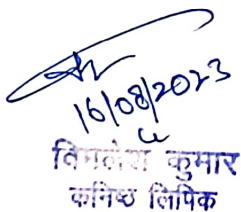 16/08/2023
विमलेश कुमार
कनिष्ठ लिपिक